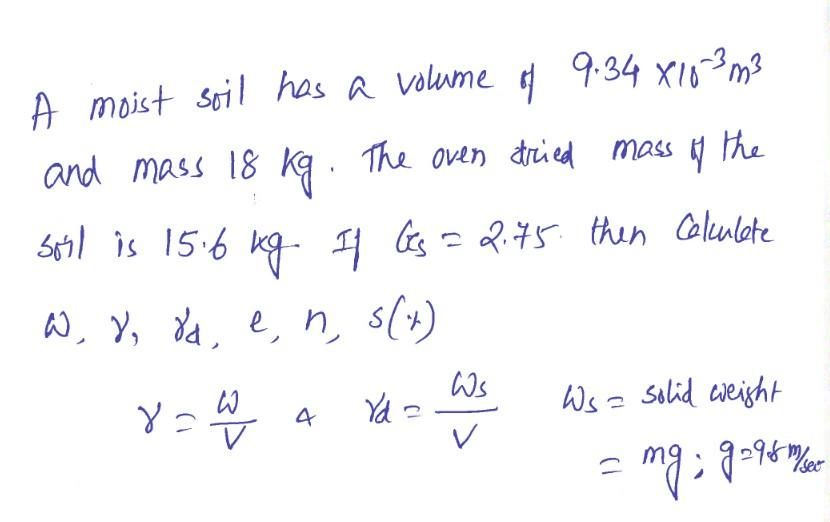 A moist soil has a volume of 9.34 x10⁻³ m³
and mass 18 kg. The oven dried mass of the
soil is 15.6 kg. If Gs = 2.75. then Calculate
ω, γ, γd, e, n, s(%)
γ = W/V & γd = Ws/V Ws = solid weight
= mg; g=9.8 m/sec